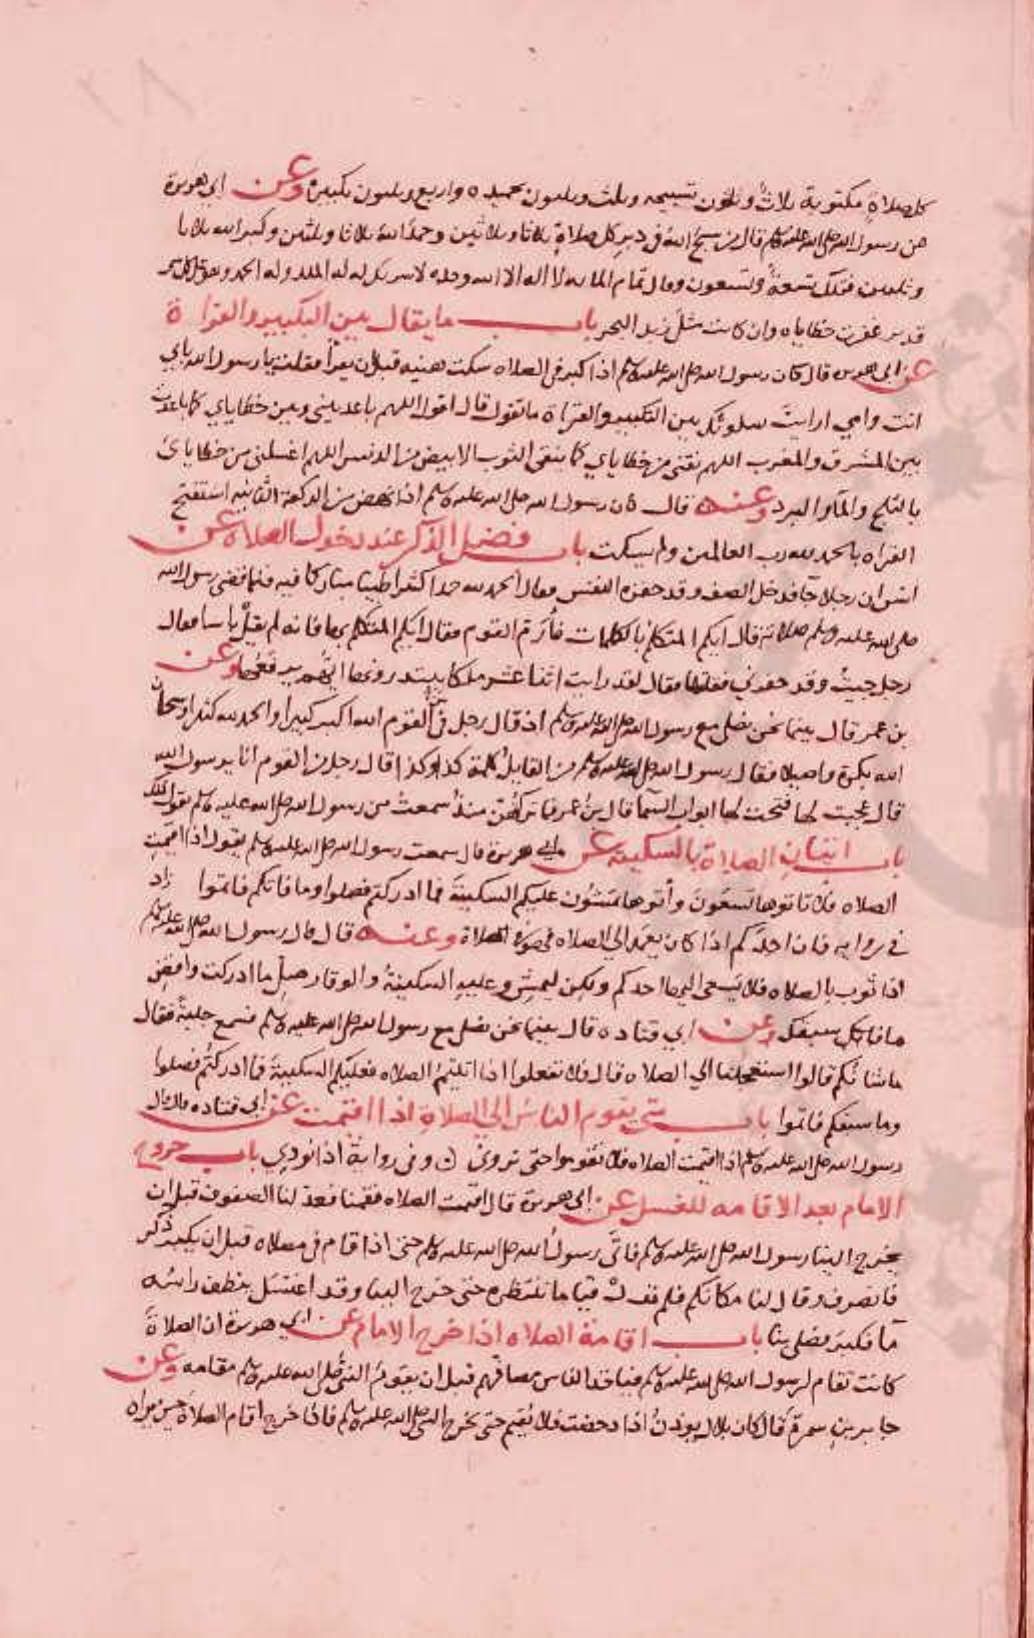 كل صلاة مكتوبة ثلاث وثلثون تسبيحه وثلث وثلثون تحميده واربع وثلثون تكبيره وعن ابي هريرة
عن رسول الله صلى الله عليه وسلم قال من سبح الله في دبر كل صلاة ثلاثا وثلاثين وحمد الله ثلاثا وثلثين وكبر الله ثلاثا
وثلثين فتلك تسعة وتسعون وقال تمام المائه لا اله الا الله وحده لا شريك له له الملك وله الحمد وهو على كل شي
قدير غفرت خطاياه وان كانت مثل زبد البحر باب ما يقال بين التكبير والقراة
عن ابي هريره قال كان رسول الله صلى الله عليه وسلم اذا كبر في الصلاه سكت هنيه قبل ان يقرأ فقلت يا رسول الله بابي
انت وامي ارايت سكوتك بين التكبير والقراة ما تقول قال اقول اللهم باعد بيني وبين خطاياي كما باعدت
بين المشرق والمغرب اللهم نقني من خطاياي كما ينقى الثوب الابيض من الدنس اللهم اغسلني من خطاياي
بالثلج والمآ والبرد وعنه قال كان رسول الله صلى الله عليه وسلم اذا نهض من الركعة الثانيه استفتح
القراه بالحمد لله رب العالمين ولم يسكت باب فضل الذكر عند دخول الصلاة عن
انس ان رجلا جآ فدخل الصف وقد حفزه النفس فقال الحمد لله حمدا كثيرا طيبا مباركا فيه فلما قضى رسول الله
صلى الله عليه وسلم صلاته قال ايكم المتكلم بالكلمات فأرم القوم فقال ايكم المتكلم بها فانه لم يقل باسا فقال
رجل جيت وقد حفزني فقلتها فقال لقد رايت اثنا عشر ملكا يبتدرونها ايهم يرفعها وعن
بن عمر قال بينما نحن نصلي مع رسول الله صلى الله عليه وسلم اذ قال رجل في القوم الله اكبر كبيرا والحمد لله كثيرا وسبحان
الله بكرة واصيلا فقال رسول الله صلى الله عليه وسلم من القايل كلمة كذا وكذا قال رجل من القوم انا يرسول الله
قال عجبت لها فتحت لها ابواب السمآ قال بن عمر فما تركتهن منذ سمعت من رسول الله صلى الله عليه وسلم يقول ذلك
باب اتيان الصلاة بالسكينه عن ابي هريرة قال سمعت رسول الله صلى الله عليه وسلم يقول اذا اقيمت
الصلاه فلا تاتوها تسعون وأتوها تمشون عليكم السكينة فما ادركتم فصلوا وما فاتكم فاتموا زاد
في روايه فان احدكم اذا كان يعمد الى الصلاه فهو في الصلاة وعنه قال قال رسول الله صلى الله عليه وسلم
اذا ثوب بالصلاه فلا يسعى اليها احدكم ولكن ليمش وعليه السكينة والوقار صل ما ادركت واقض
ما سبقك وعن ابي قتاده قال بينما نحن نصلي مع رسول الله صلى الله عليه وسلم فسمع جلبة فقال
ما شانكم قالوا استعجلنا الي الصلاه قال فلا تفعلوا اذا اتيتم الصلاه فعليكم السكينة فما ادركتم فصلوا
وما سبقكم فاتموا باب متى يقوم الناس الى الصلاة اذا اقيمت عن ابي قتاده قال قال
رسول الله صلى الله عليه وسلم اذا اقيمت الصلاه فلا تقوموا حتى تروني وفي رواية اذا نودي باب خروج
الامام بعد الاقامه للغسل عن ابي هريرة قال اقيمت الصلاه فقمنا فعدلنا الصفوف قبل ان
يخرج الينا رسول الله صلى الله عليه وسلم فاتى رسول الله صلى الله عليه وسلم حتى اذا قام في مصلاه قبل ان يكبر ذكر
فانصرف وقال لنا مكانكم فلم نزل قياما ننتظره حتى خرج الينا وقد اغتسل ينطف راسه
مآ فكبر فصلى بنا باب اقامة الصلاه اذا خرج الامام عن ابي هريرة ان الصلاة
كانت تقام لرسول الله صلى الله عليه وسلم فياخذ الناس مصافهم قبل ان يقوم النبي صلى الله عليه وسلم مقامه وعن
جابر بن سمرة قال كان بلال يوذن اذا دحضت فلا يقيم حتى يخرج النبي صلى الله عليه وسلم فاذا خرج اقام الصلاة حين يراه